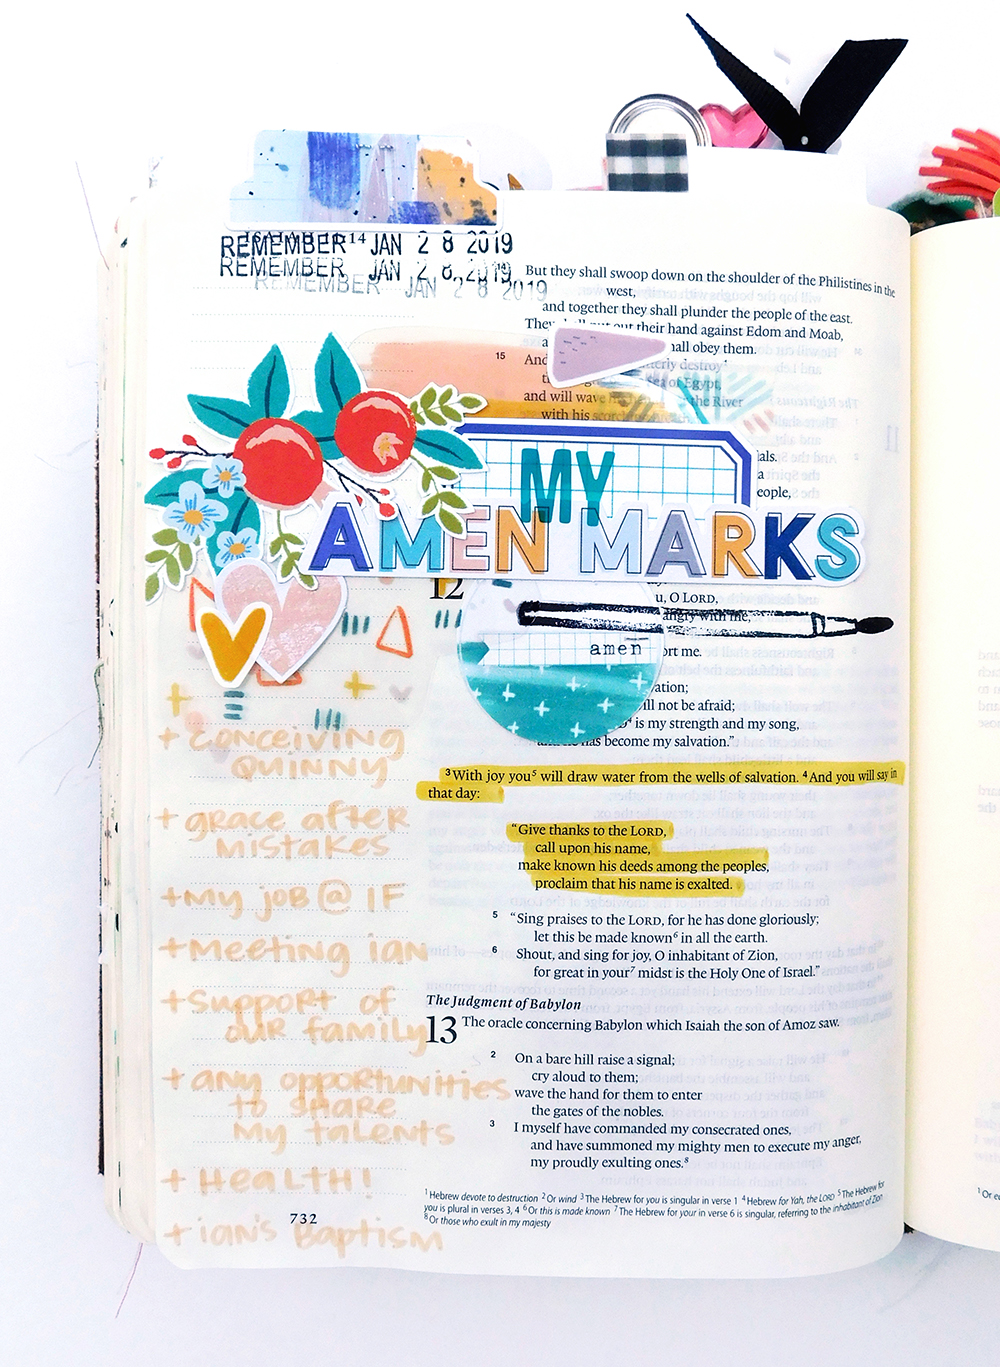 REMEMBER JAN 2 8 2019
REMEMBER JAN 2 8 2019
REMEMBER JAN 2 8 2019
14
But they shall swoop down on the shoulder of the Philistines in the
west,
and together they shall plunder the people of the east.
They out their hand against Edom and Moab,
shall obey them.
15 And destroy
of Egypt,
and will wave the River
with his
people,
MY
AMEN MARKS
12
O LORD,
angry with me,
amen
not be afraid;
is my strength and my song,
has become my salvation.”
3 With joy you5 will draw water from the wells of salvation. 4 And you will say in
that day:
“Give thanks to the LORD,
call upon his name,
make known his deeds among the peoples,
proclaim that his name is exalted.
5 “Sing praises to the LORD, for he has done gloriously;
let this be made known6 in all the earth.
6 Shout, and sing for joy, O inhabitant of Zion,
for great in your7 midst is the Holy One of Israel.”
The Judgment of Babylon
13 The oracle concerning Babylon which Isaiah the son of Amoz saw.
2 On a bare hill raise a signal;
cry aloud to them;
wave the hand for them to enter
the gates of the nobles.
3 I myself have commanded my consecrated ones,
and have summoned my mighty men to execute my anger,
my proudly exulting ones.8
1 Hebrew devote to destruction 2 Or wind 3 The Hebrew for you is singular in verse 1 4 Hebrew for Yah, the LORD 5 The Hebrew for
you is plural in verses 3, 4 6 Or this is made known 7 The Hebrew for your in verse 6 is singular, referring to the inhabitant of Zion
8 Or those who exult in my majesty
+ conceiving
Quinny
+ grace after
mistakes
+ my job @ IF
+ meeting ian
+ support of
our family
+ any opportunities
to share
my talents
+ Health!
+ ian's Baptism
732